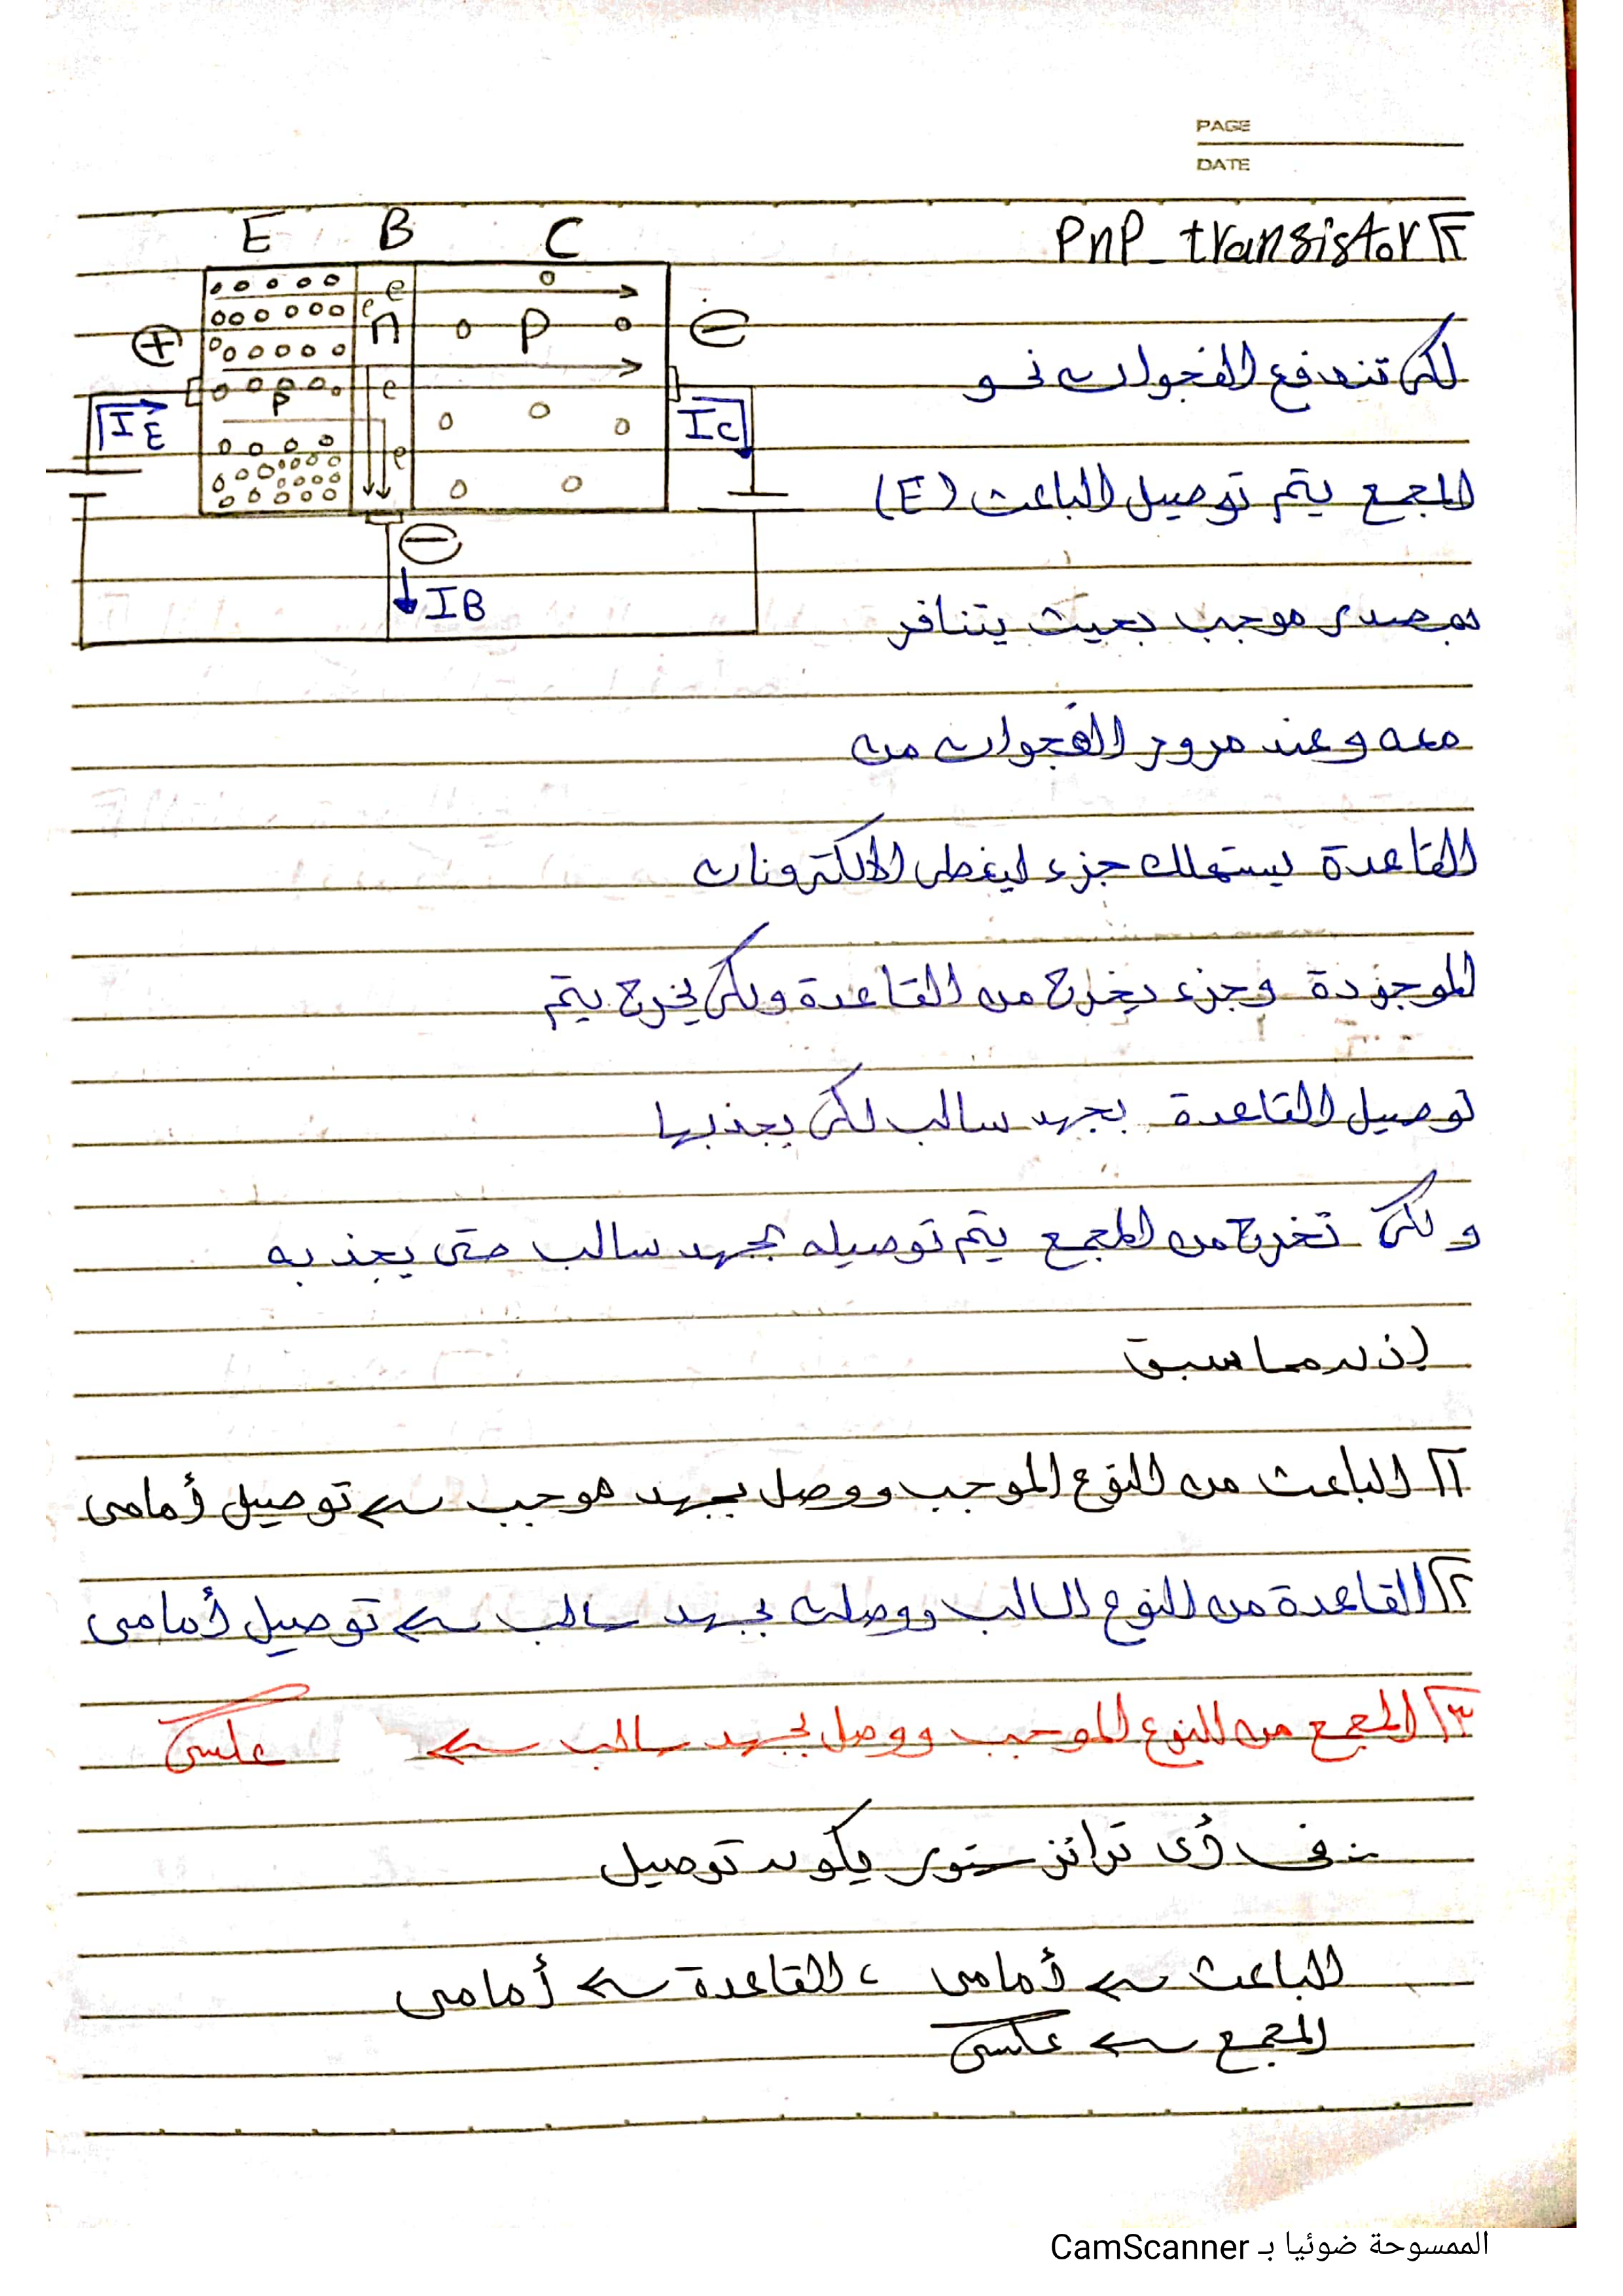 PAGE
DATE
٢ PnP_transistor
E B C
e
e
n
P
e
P
e
+
−
−
IE
IC
IB
لكى تندفع الفجوات نحو
المجمع يتم توصيل الباعث (E)
بمصدر موجب بحيث يتنافر
معه وعند مرور الفجوات من
القاعدة يستهلك جزء ليغطى الالكترونات
الموجودة وجزء يخرج من القاعدة ولكى يخرج يتم
توصيل القاعدة بجهد سالب لكى يجذبها
ولكى تخرج من المجمع يتم توصيله بجهد سالب حتى يجذبه
إذن مما سبق
١ الباعث من النوع الموجب ووصل بجهد موجب ← توصيل أمامى
٢ القاعدة من النوع السالب ووصلت بجهد سالب ← توصيل أمامى
٣ المجمع من النوع الموجب ووصل بجهد سالب ← عكسى
∴ فى أى ترانزستور يكون توصيل
الباعث ← أمامى ، القاعدة ← أمامى
المجمع ← عكسى
الممسوحة ضوئيا بـ CamScanner